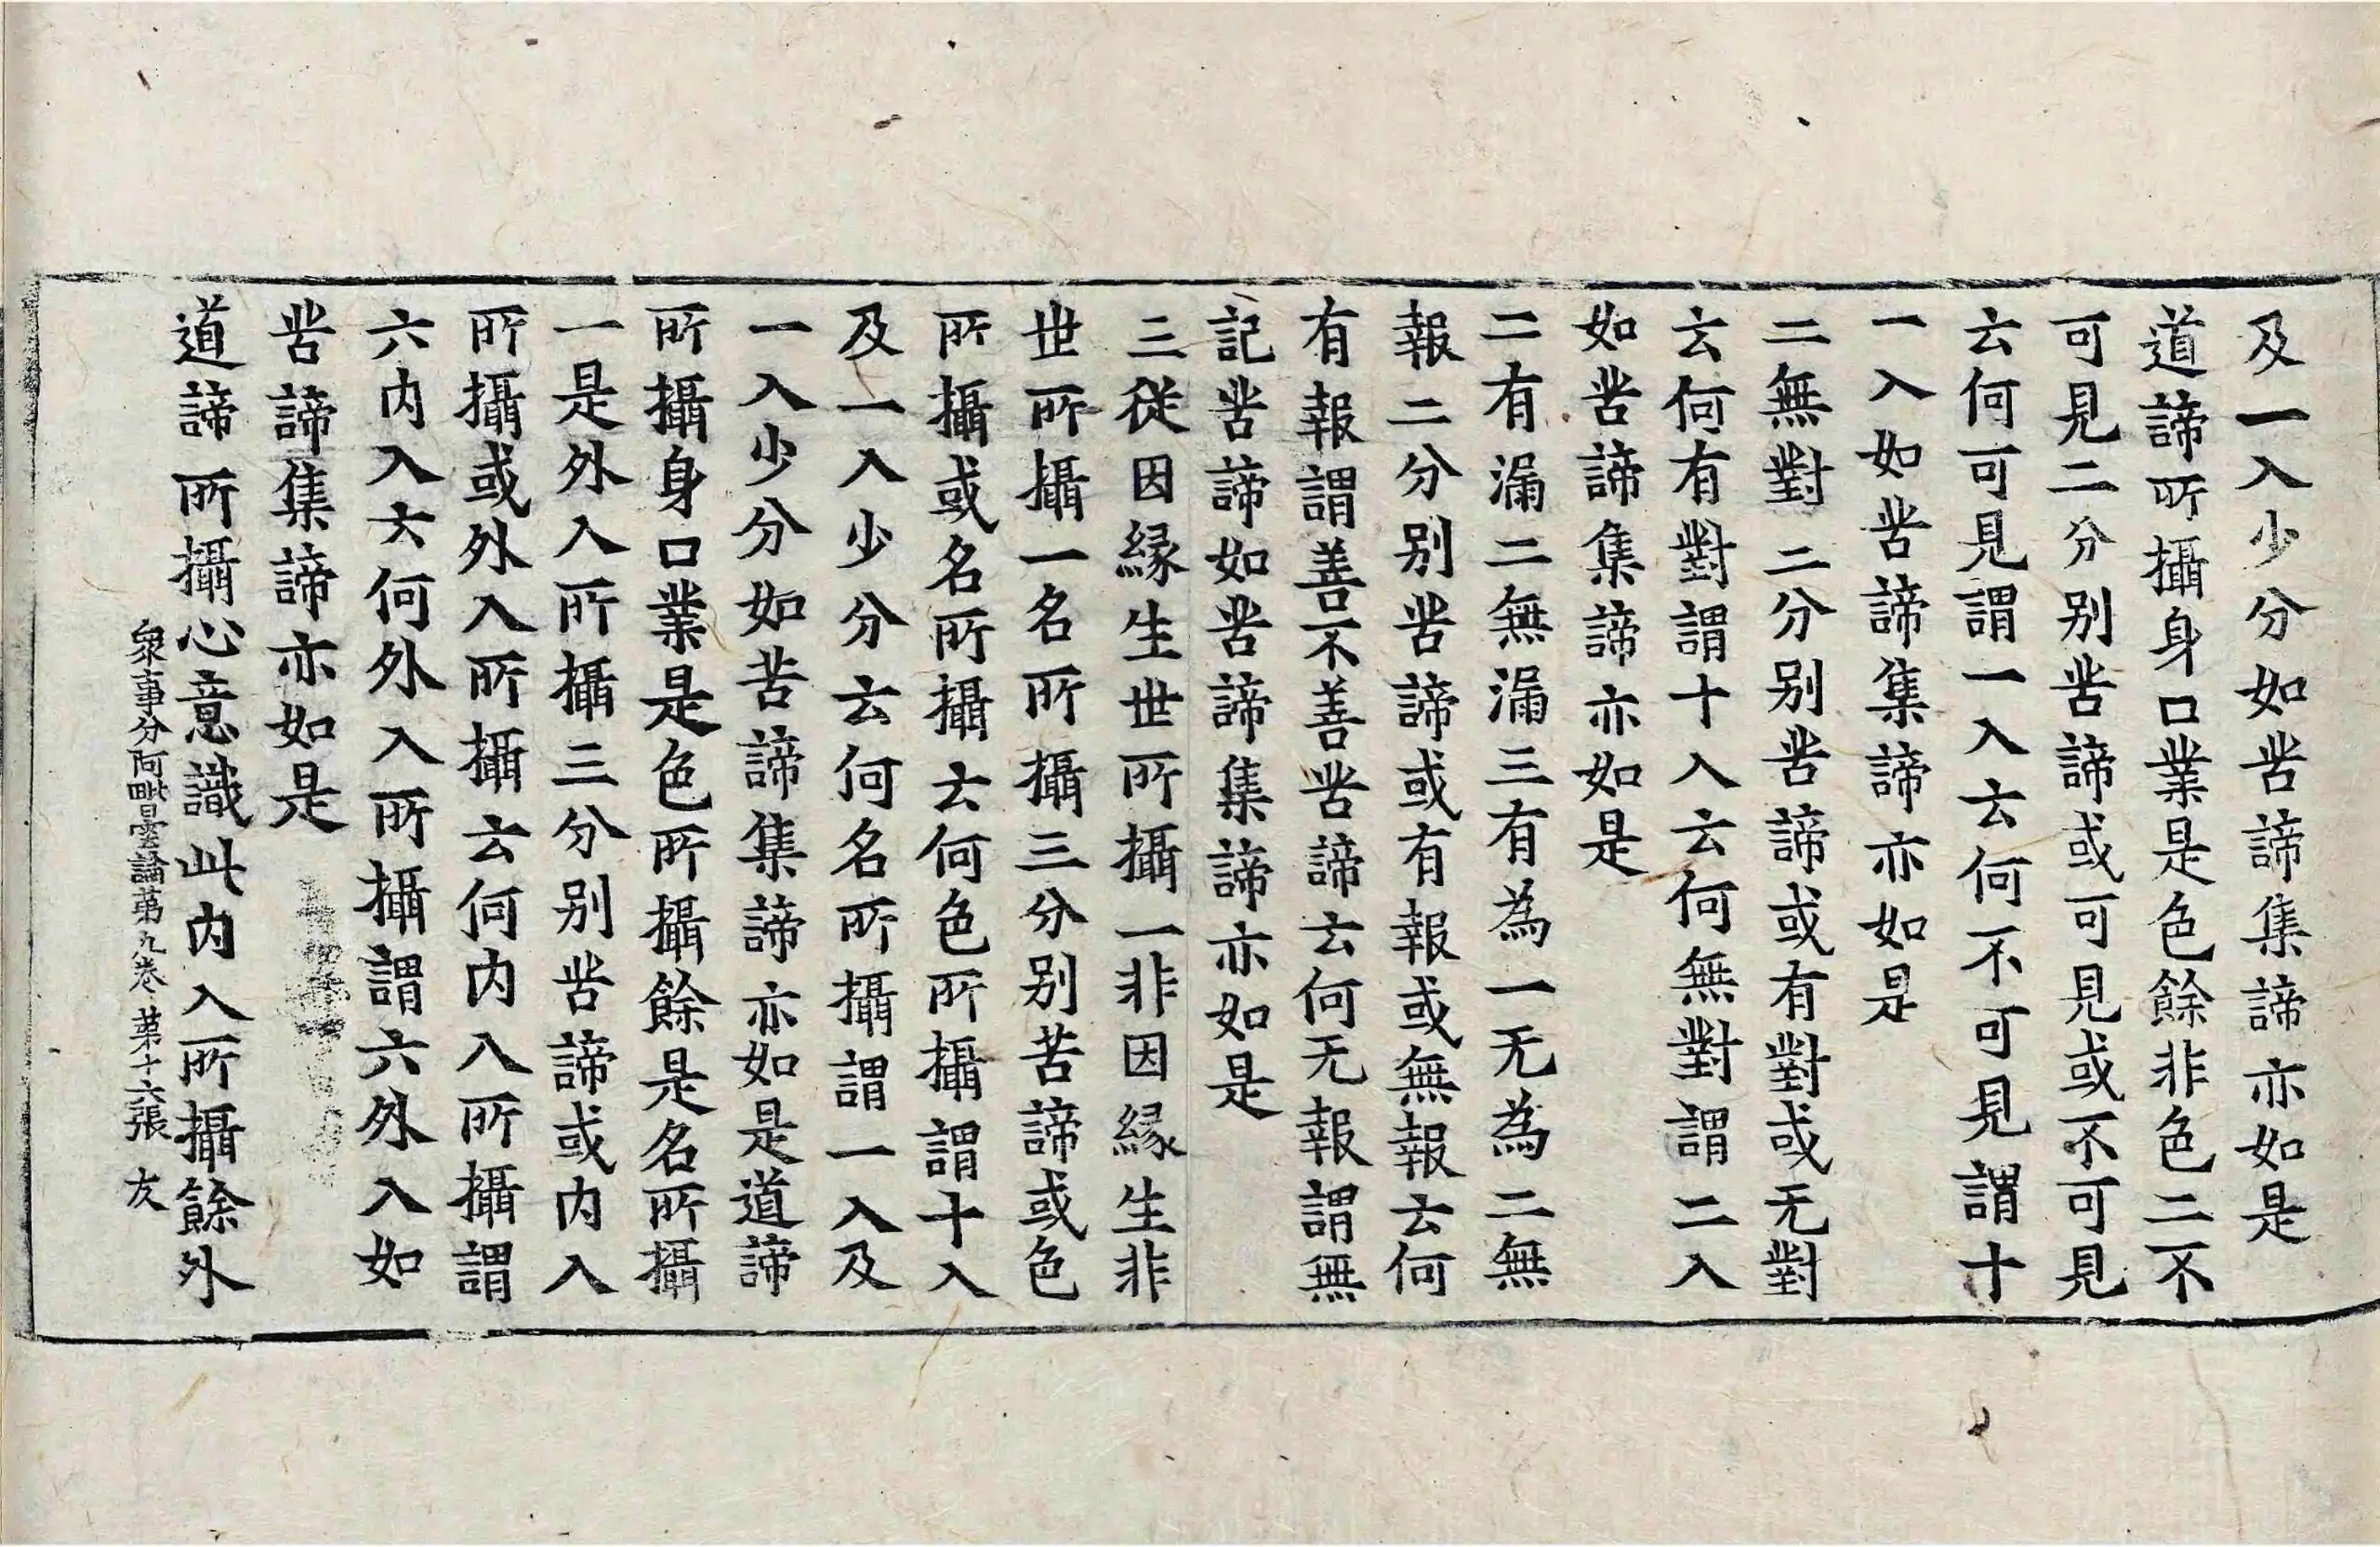 及一入少分如苦諦集諦亦如是
道諦所攝身口業是色餘非色二不
可見二分别苦諦或可見或不可見
云何可見謂一入云何不可見謂十
一入如苦諦集諦亦如是
二無對二分别苦諦或有對或无對
云何有對謂十入云何無對謂二入
如苦諦集諦亦如是
二有漏二無漏三有為一无為二無
報二分别苦諦或有報或無報云何
有報謂善不善苦諦云何无報謂無
記苦諦如苦諦集諦亦如是
三従因縁生世所攝一非因縁生非
世所攝一名所攝三分别苦諦或色
所攝或名所攝云何色所攝謂十入
及一入少分云何名所攝謂一入及
一入少分如苦諦集諦亦如是道諦
所攝身口業是色所攝餘是名所攝
一是外入所攝三分别苦諦或内入
所攝或外入所攝云何内入所攝謂
六内入云何外入所攝謂六外入如
苦諦集諦亦如是
道諦所攝心意識此内入所攝餘外
衆事分阿毗曇論苐九卷 苐十六張 友